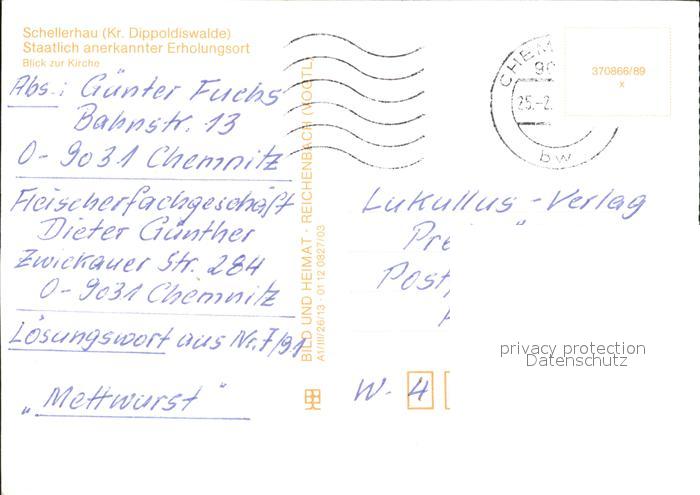 Schellerhau (Kr. Dippoldiswalde)
Staatlich anerkannter Erholungsort
Blick zur Kirche
Abs.: Günter Fuchs
Bahnstr. 13
O-9031 Chemnitz
Fleischerfachgeschäft
Dieter Günther
Zwickauer Str. 284
O-9031 Chemnitz
Lösungswort aus Nr. 7/91
„Mettwurst"
BILD UND HEIMAT · REICHENBACH (VOGTL.)
A1/III/26/13 · 01 12 0827/03
CHEM
25.-2.
bw
370866/89
x
Lukullus-Verlag
Pre
Post
W- 4
privacy protection
Datenschutz